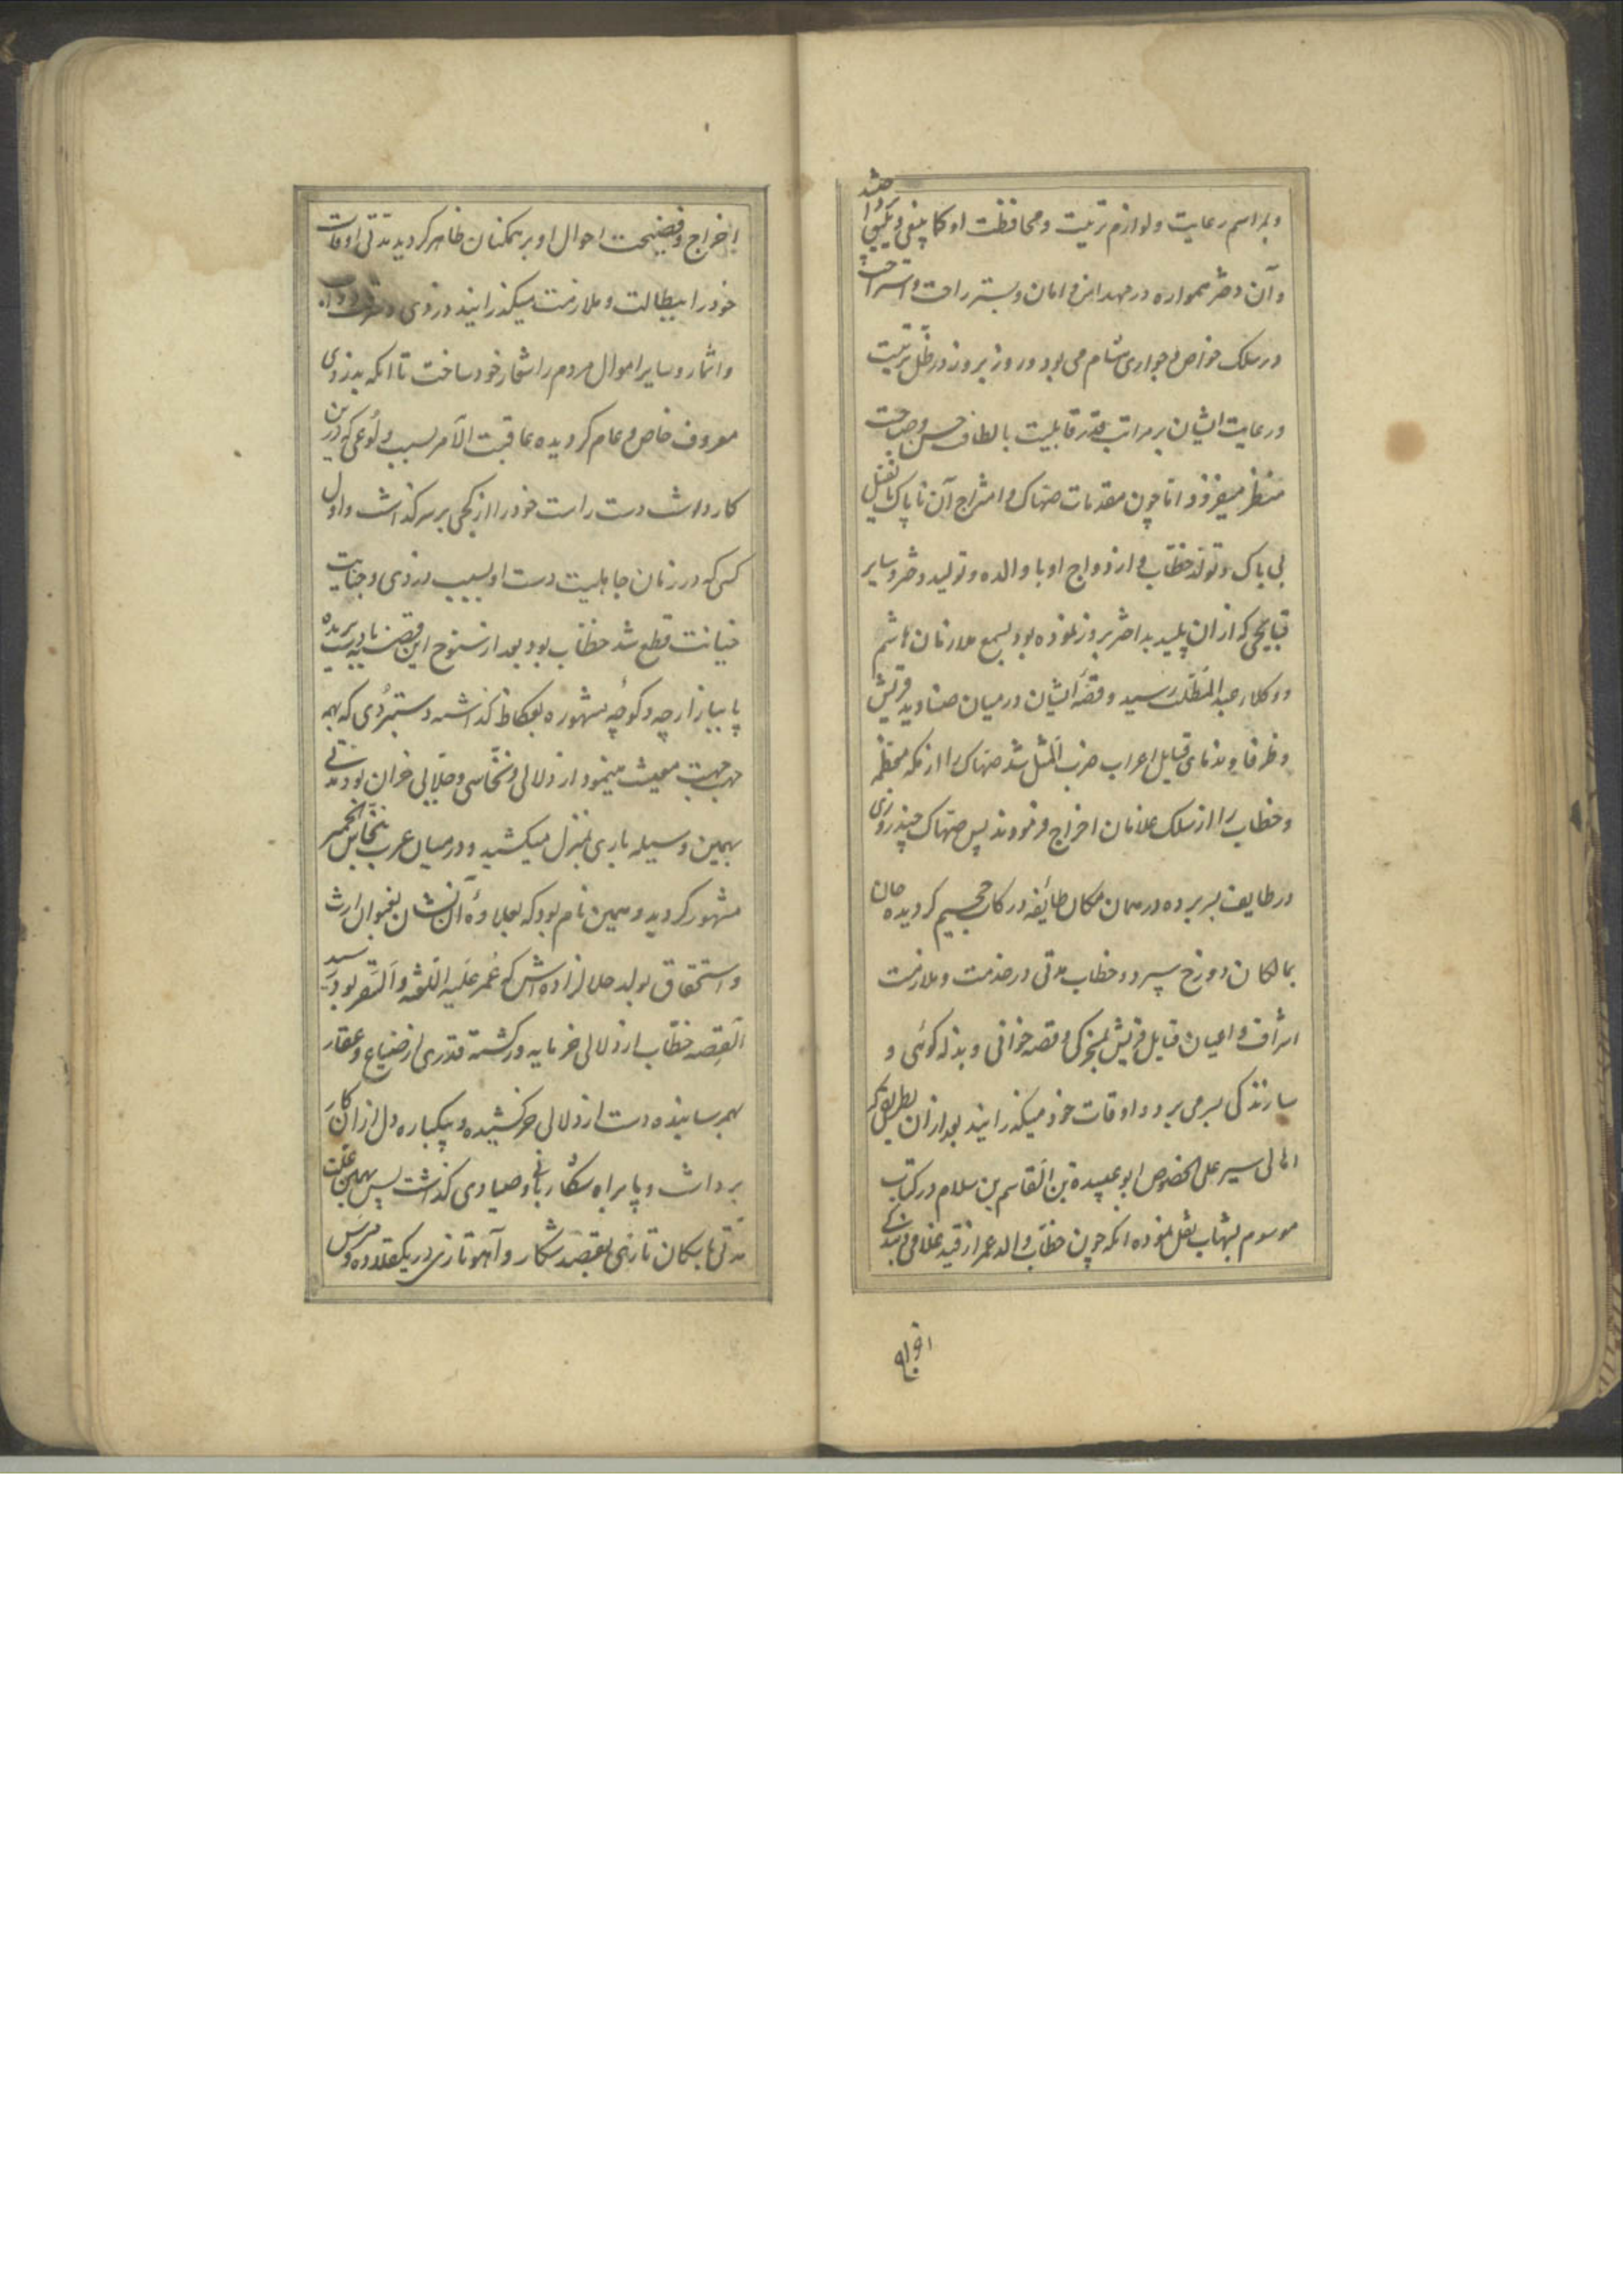 وبمراسم رعایت ولوازم تربیت ومحافظت او کما ینبغی ویلیق
وآن دختر همواره در مهد امن و امان و بستر راحت و استراحت
در سلک خواص و جواری هشام می بود و روز بروز در ظل تربیت
ورعایت ایشان بر مراتب قدر قابلیت با لطافت حسن وصباحت
منظر میفزود اما چون مقدمات صهاک و امتزاج آن ناپاک با نفیل
بی باک و تولد خطاب و ازدواج او با والده و تولید دختر و سایر
قبایحی که از ان پلید بداختر بروز نموده بود بسمع ملازمان هاشم
ووکلاء عبد المطلب رسید وقصهٔ ایشان درمیان صنادید قریش
وظرفا وندمای قبایل اعراب ضرب المثل شد صهاک را از مکه معظمه
وخطاب را از سلک غلامان اخراج فرمودند پس صهاک چند روزی
در طایف بسر برده در همان مکان طائفه درکات جحیم کردیده جان
بمالکان دوزخ سپرد و خطاب مدتی در خدمت و ملازمت
اشراف و اعیان قبایل قریش بمسخرکی و قصه خوانی و بذله کوئی و
سازندکی بسر می برد و اوقات خود میکذرانید بعد از ان بطریق که
اهالی سیر علی الخصوص ابو عبیدة بن القاسم بن سلام در کتاب
موسوم بشهاب نقل نموده انکه چون خطاب والد عمر از قید غلامی و بندکی
اخراج وفضیحت احوال او بر همکنان ظاهر کردید مدتی اوقات
خود را ببطالت و ملازمت میکذرانید و دزدی
واثمار وسایر اموال مردم را شعار خود ساخت تا انکه بدزدی
معروف خاص و عام کردیده عاقبت الامر بسبب ولوعی که درین
کار داشت دست راست خود را از کجی بر سر کذاشت واول
کسی که در زمان جاهلیت دست او بسبب دزدی وجنایت
خیانت قطع شد خطاب بود بعد از سنوح این قضیه با دست بریده
پا ببازارچه وکوچه مشهوره بعکاظ کذاشته دستمزدی که بهمه
جهت معیشت مینمود از دلالی ونخاسی وجلابی خران بود مدتی
بهمین وسیله باری بمنزل میکشید و درمیان عرب بنخاس الحمیر
مشهور کردید وهمین نام بود که بعلاوهٔ آن نشان بعنوان ارث
واستحقاق بولد حلالزاده اش که عمر علیه اللعنه والسقر بود رسید
القصه خطاب از دلالی خر مایه ور کشته قدری از ضیاع وعقار
بهم رسانیده دست از دلالی خر کشیده و بیکباره دل از ان کار
برداشت و پا براه شکاربانی وصیادی کذاشت پس بهمین علت
مدتی با سکان تازی بقصد شکار و آهو تازی در یک قلاده ومرس